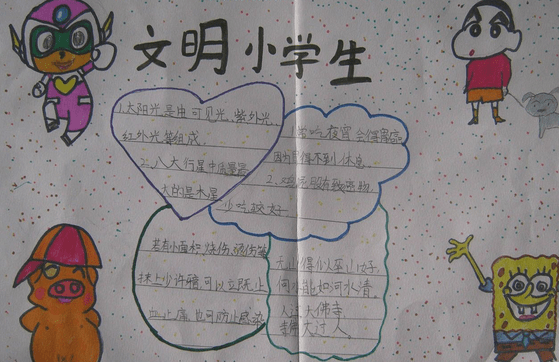 文明小学生
1.太阳光是由可见光、紫外光、
红外光等组成。
2.八大行星中质量最
大的是木星
1.常吃夜宵会得胃癌
因为胃得不到休息
2.鸡屁股有致癌物
少吃较好
若有小面积烧伤、烫伤等
抹上少许牙膏可以立既止
血止痛也可防止感染
无山得似巫山好
何水能如河水清。
人过大佛寺
寺佛大过人